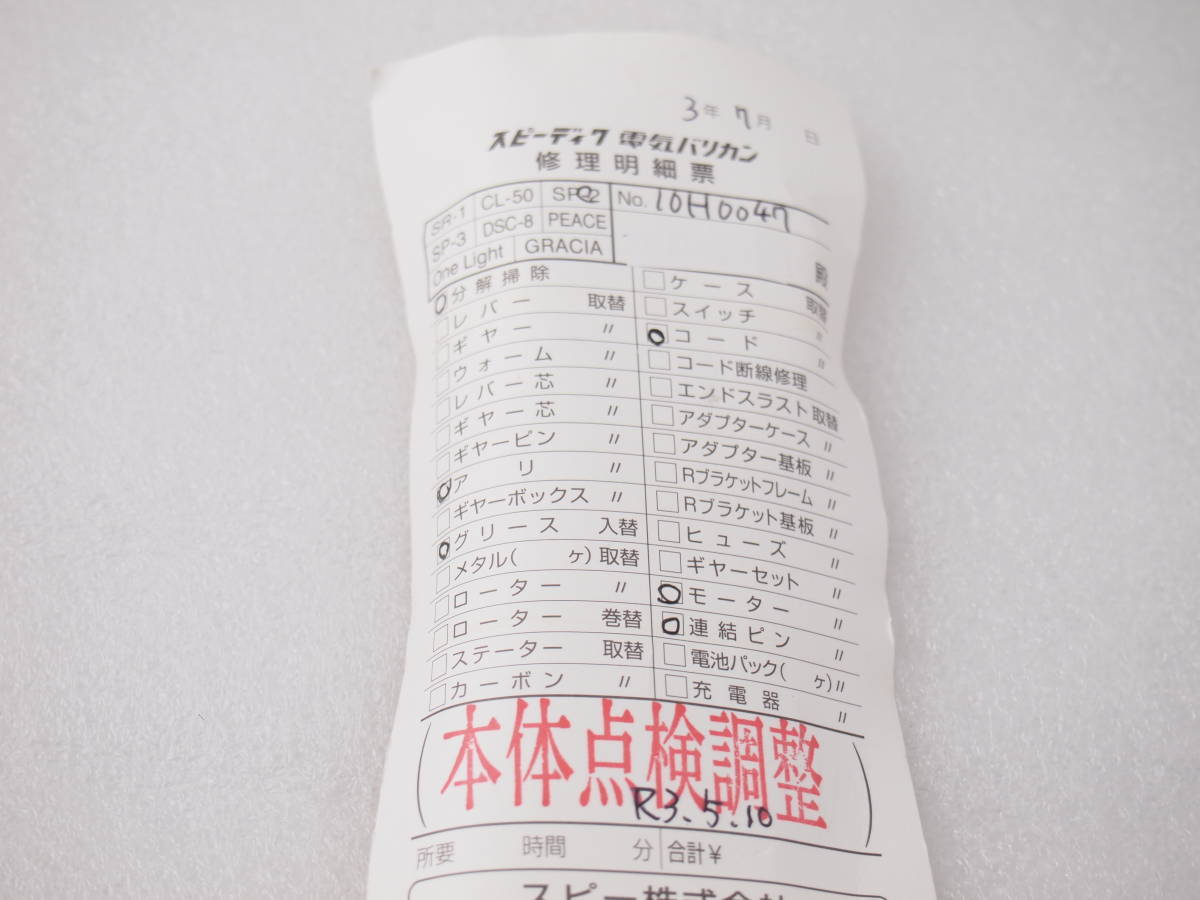 3年 7月 日
スピーディク 電気バリカン
修理明細票
SR-1 CL-50 SP-2 No. 10H0047
SP-3 DSC-8 PEACE
One Light GRACIA 殿
分解掃除
レバー 取替
ギヤー 〃
ウォーム 〃
レバー芯 〃
ギヤー芯 〃
ギヤーピン 〃
アリ 〃
ギヤーボックス 〃
グリース 入替
メタル( ヶ) 取替
ローター 〃
ローター 巻替
ステーター 取替
カーボン 〃
ケース 取替
スイッチ 〃
コード 〃
コード断線修理
エンドスラスト 取替
アダプターケース 〃
アダプター基板 〃
Rブラケットフレーム 〃
Rブラケット基板 〃
ヒューズ 〃
ギヤーセット 〃
モーター 〃
連結ピン 〃
電池パック( ヶ)〃
充電器 〃
本体点検調整
R3.5.10
所要 時間 分 合計¥
スピー株式会社